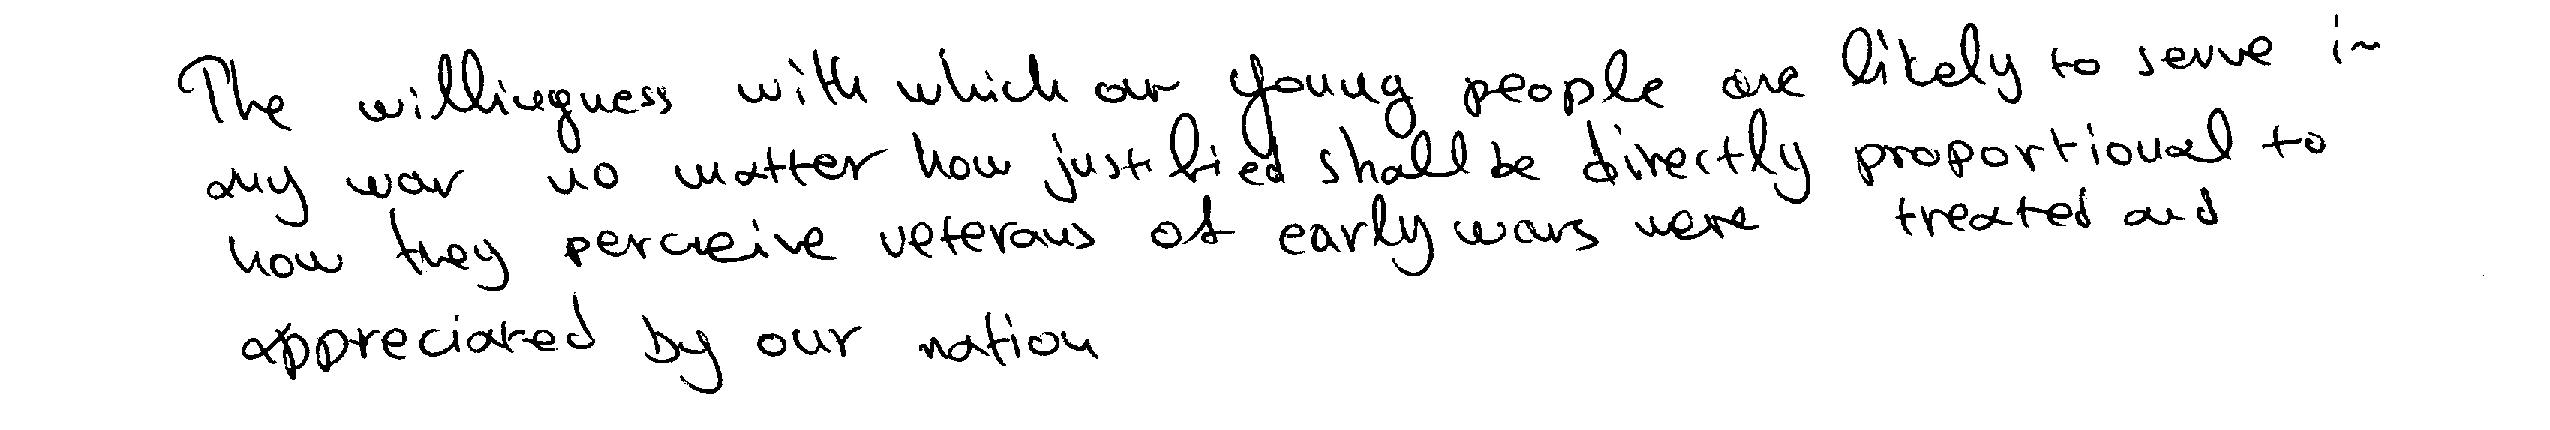 The willingness with which our young people are likely to serve in
any war no matter how justified shall be directly proportional to
how they perceive veterans of early wars were treated and
appreciated by our nation